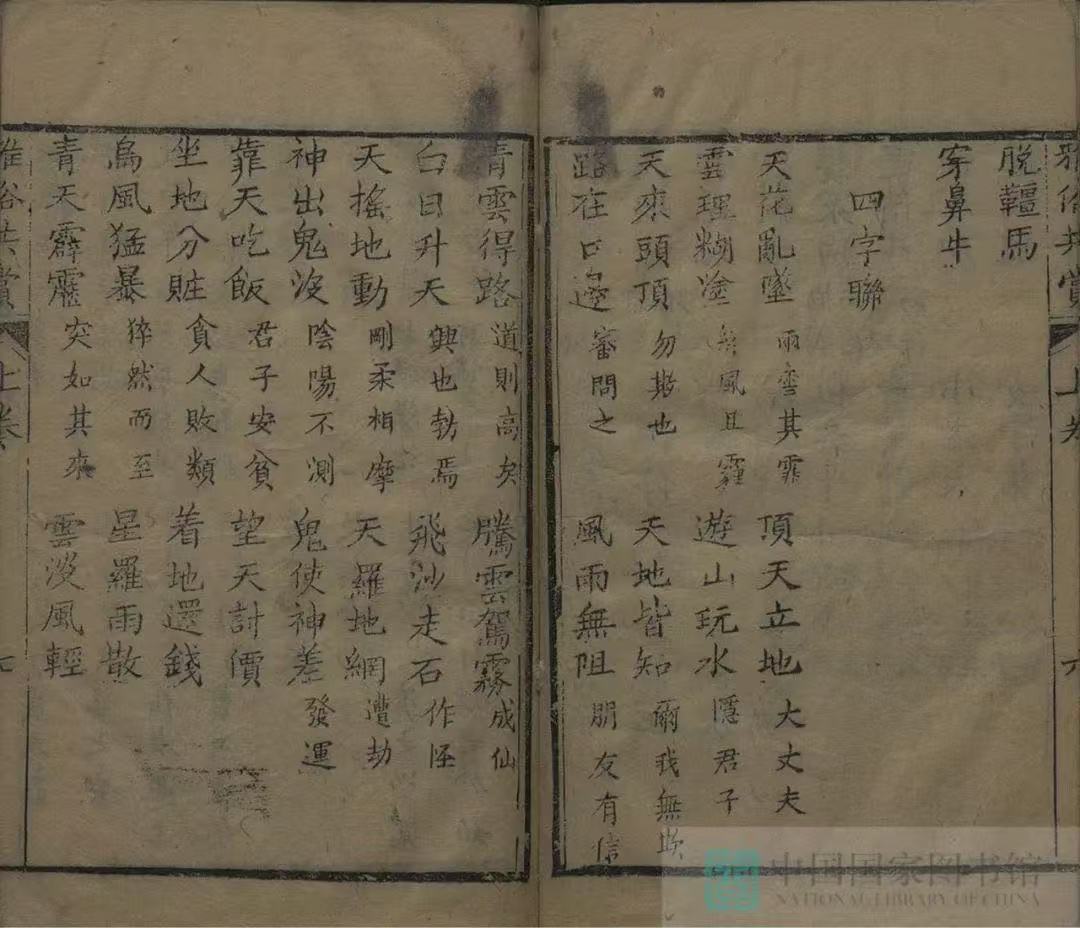 雅俗共賞 上卷 六
脫韁馬
穿鼻牛
四字聯
天花亂墜 雨雪其霏 頂天立地 大丈夫
雲理糊塗 終風且霾 遊山玩水 隱君子
天來頭頂 勿欺也 天地皆知 爾我無欺
路在口邊 審問之 風雨無阻 朋友有信
青雲得路 道則高矣 騰雲駕霧 成仙
白日升天 興也勃焉 飛沙走石 作怪
天搖地動 剛柔相摩 天羅地網 遭劫
神出鬼沒 陰陽不測 鬼使神差 發運
靠天吃飯 君子安貧 望天討價
坐地分賍 貪人敗類 着地還錢
烏風猛暴 猝然而至 星羅雨散
青天霹靂 突如其來 雲淡風輕
雅俗共賞 上卷 七
中国国家图书馆
NATIONAL LIBRARY OF CHINA